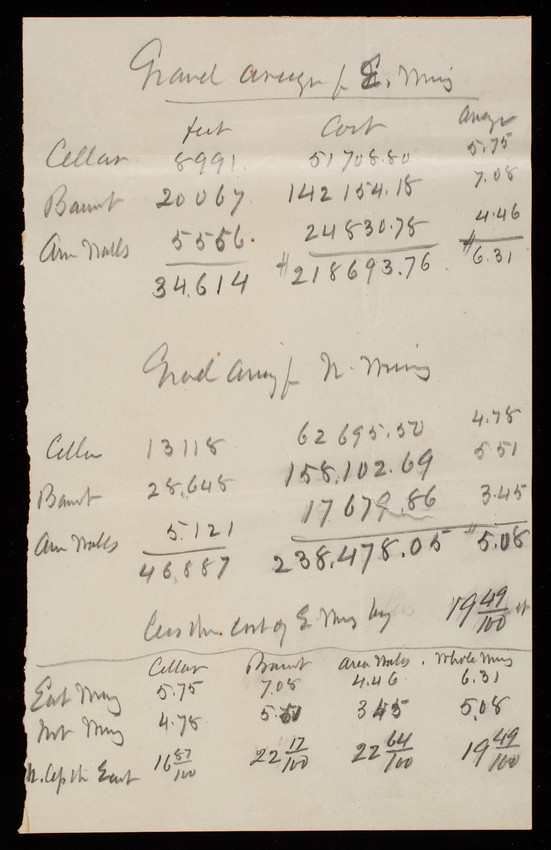 Grand average for E. Wing
feet Cost Average
Cellar 8991. 51708.80 5.75
Basmt 20067 142154.18 7.08
Area Walls 5556. 24830.78 4.46
34,614 $218693.76 $6.31
Grand average for N. Wing
Cellar 13118 62695.50 4.78
Basmt 28,648 158,102.69 5.51
Area Walls 5.121 17679.86 3.45
46,887 238,478.05 $5.08
less than cost of E Wing by 19 49/100
Cellar Basmt Area Walls. Whole Wing
East Wing 5.75 7.08 4.46 6.31
North Wing 4.78 5.51 345 5,08
N. less th East 16 87/100 22 17/100 22 64/100 19 49/100